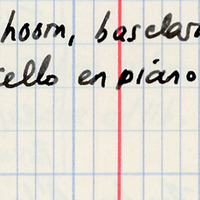 hoorn, basclar
cello en piano